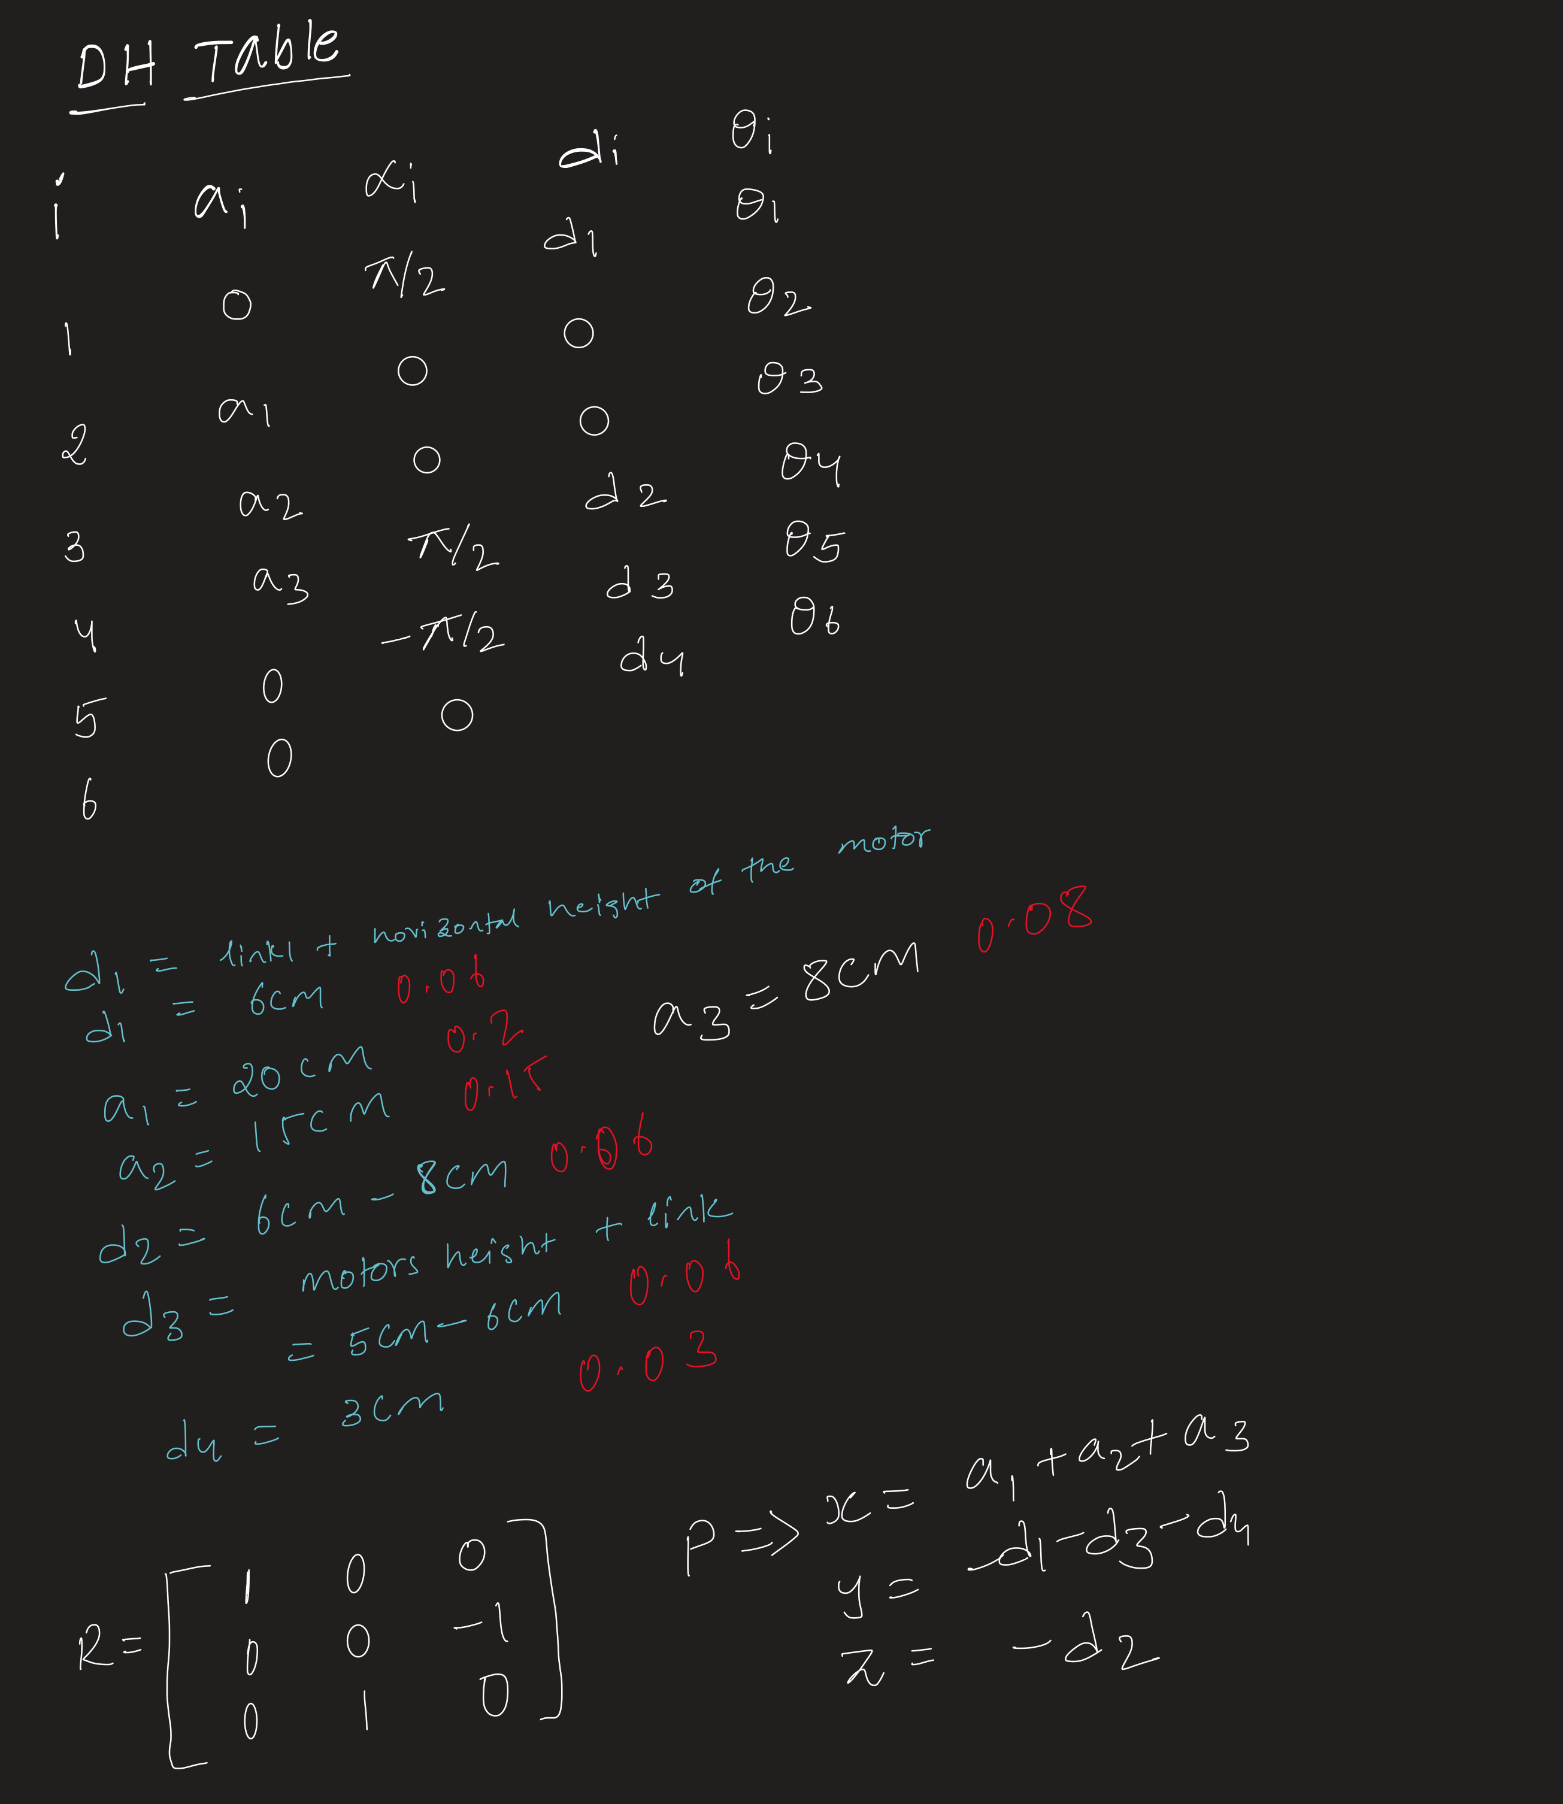 DH Table
i ai αi di θi
1 0 π/2 d1 θ1
2 a1 0 0 θ2
3 a2 0 0 θ3
4 a3 π/2 d2 θ4
5 0 -π/2 d3 θ5
6 0 0 d4 θ6
d1 = link1 + horizontal height of the motor
d1 = 6cm 0.06
a3 = 8cm 0.08
a1 = 20cm 0.2
a2 = 15cm 0.15
d2 = 6cm - 8cm 0.06
d3 = motors height + link
= 5cm - 6cm 0.06
d4 = 3cm 0.03
P => x = a1 + a2 + a3
y = -d1-d3-d4
z = -d2
R =
1 0 0
0 0 -1
0 1 0